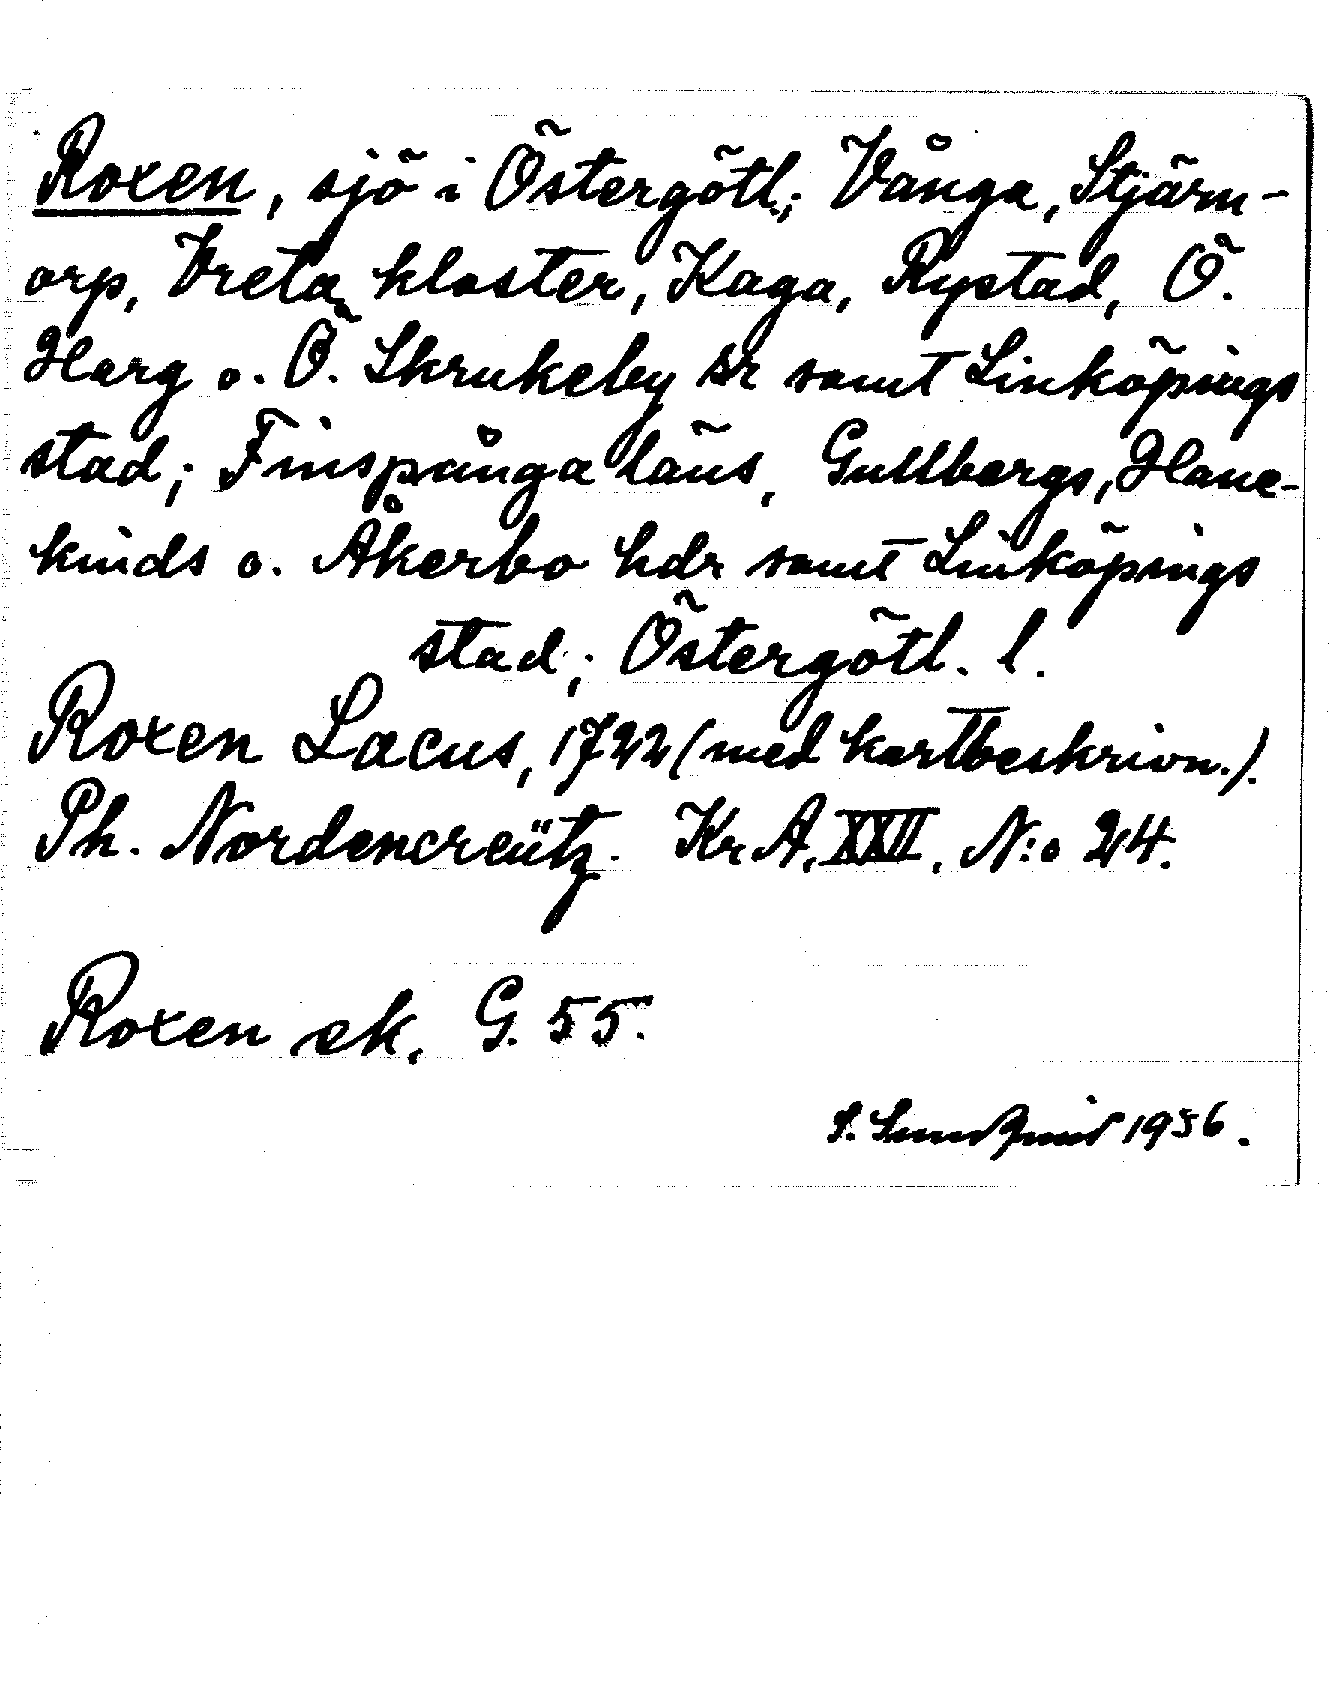 Roxen, sjö i Östergötl.; Vånga, Stjärn-
orp, Vreta kloster, Kaga, Rystad, Ö.
Harg o. Ö. Skrukeby sr samt Linköpings
stad; Finspånga läns, Gullbergs, Hane-
kinds o. Åkerbo hdr samt Linköpings
stad; Östergötl. l.
Roxen Lacus, 1722 (med kartbeskrivn.).
Ph. Nordencreütz. Kr A. XXII. N:o 24.
Roxen ek. G. 55.
S. Lundquist 1956.